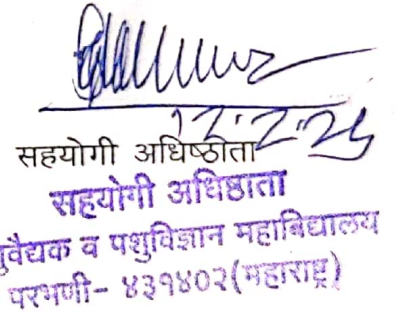 12.2.25
सहयोगी अधिष्ठाता
सहयोगी अधिष्ठाता
व पशुविज्ञान महाविद्यालय
परभणी- ४३१४०२(महाराष्ट्र)